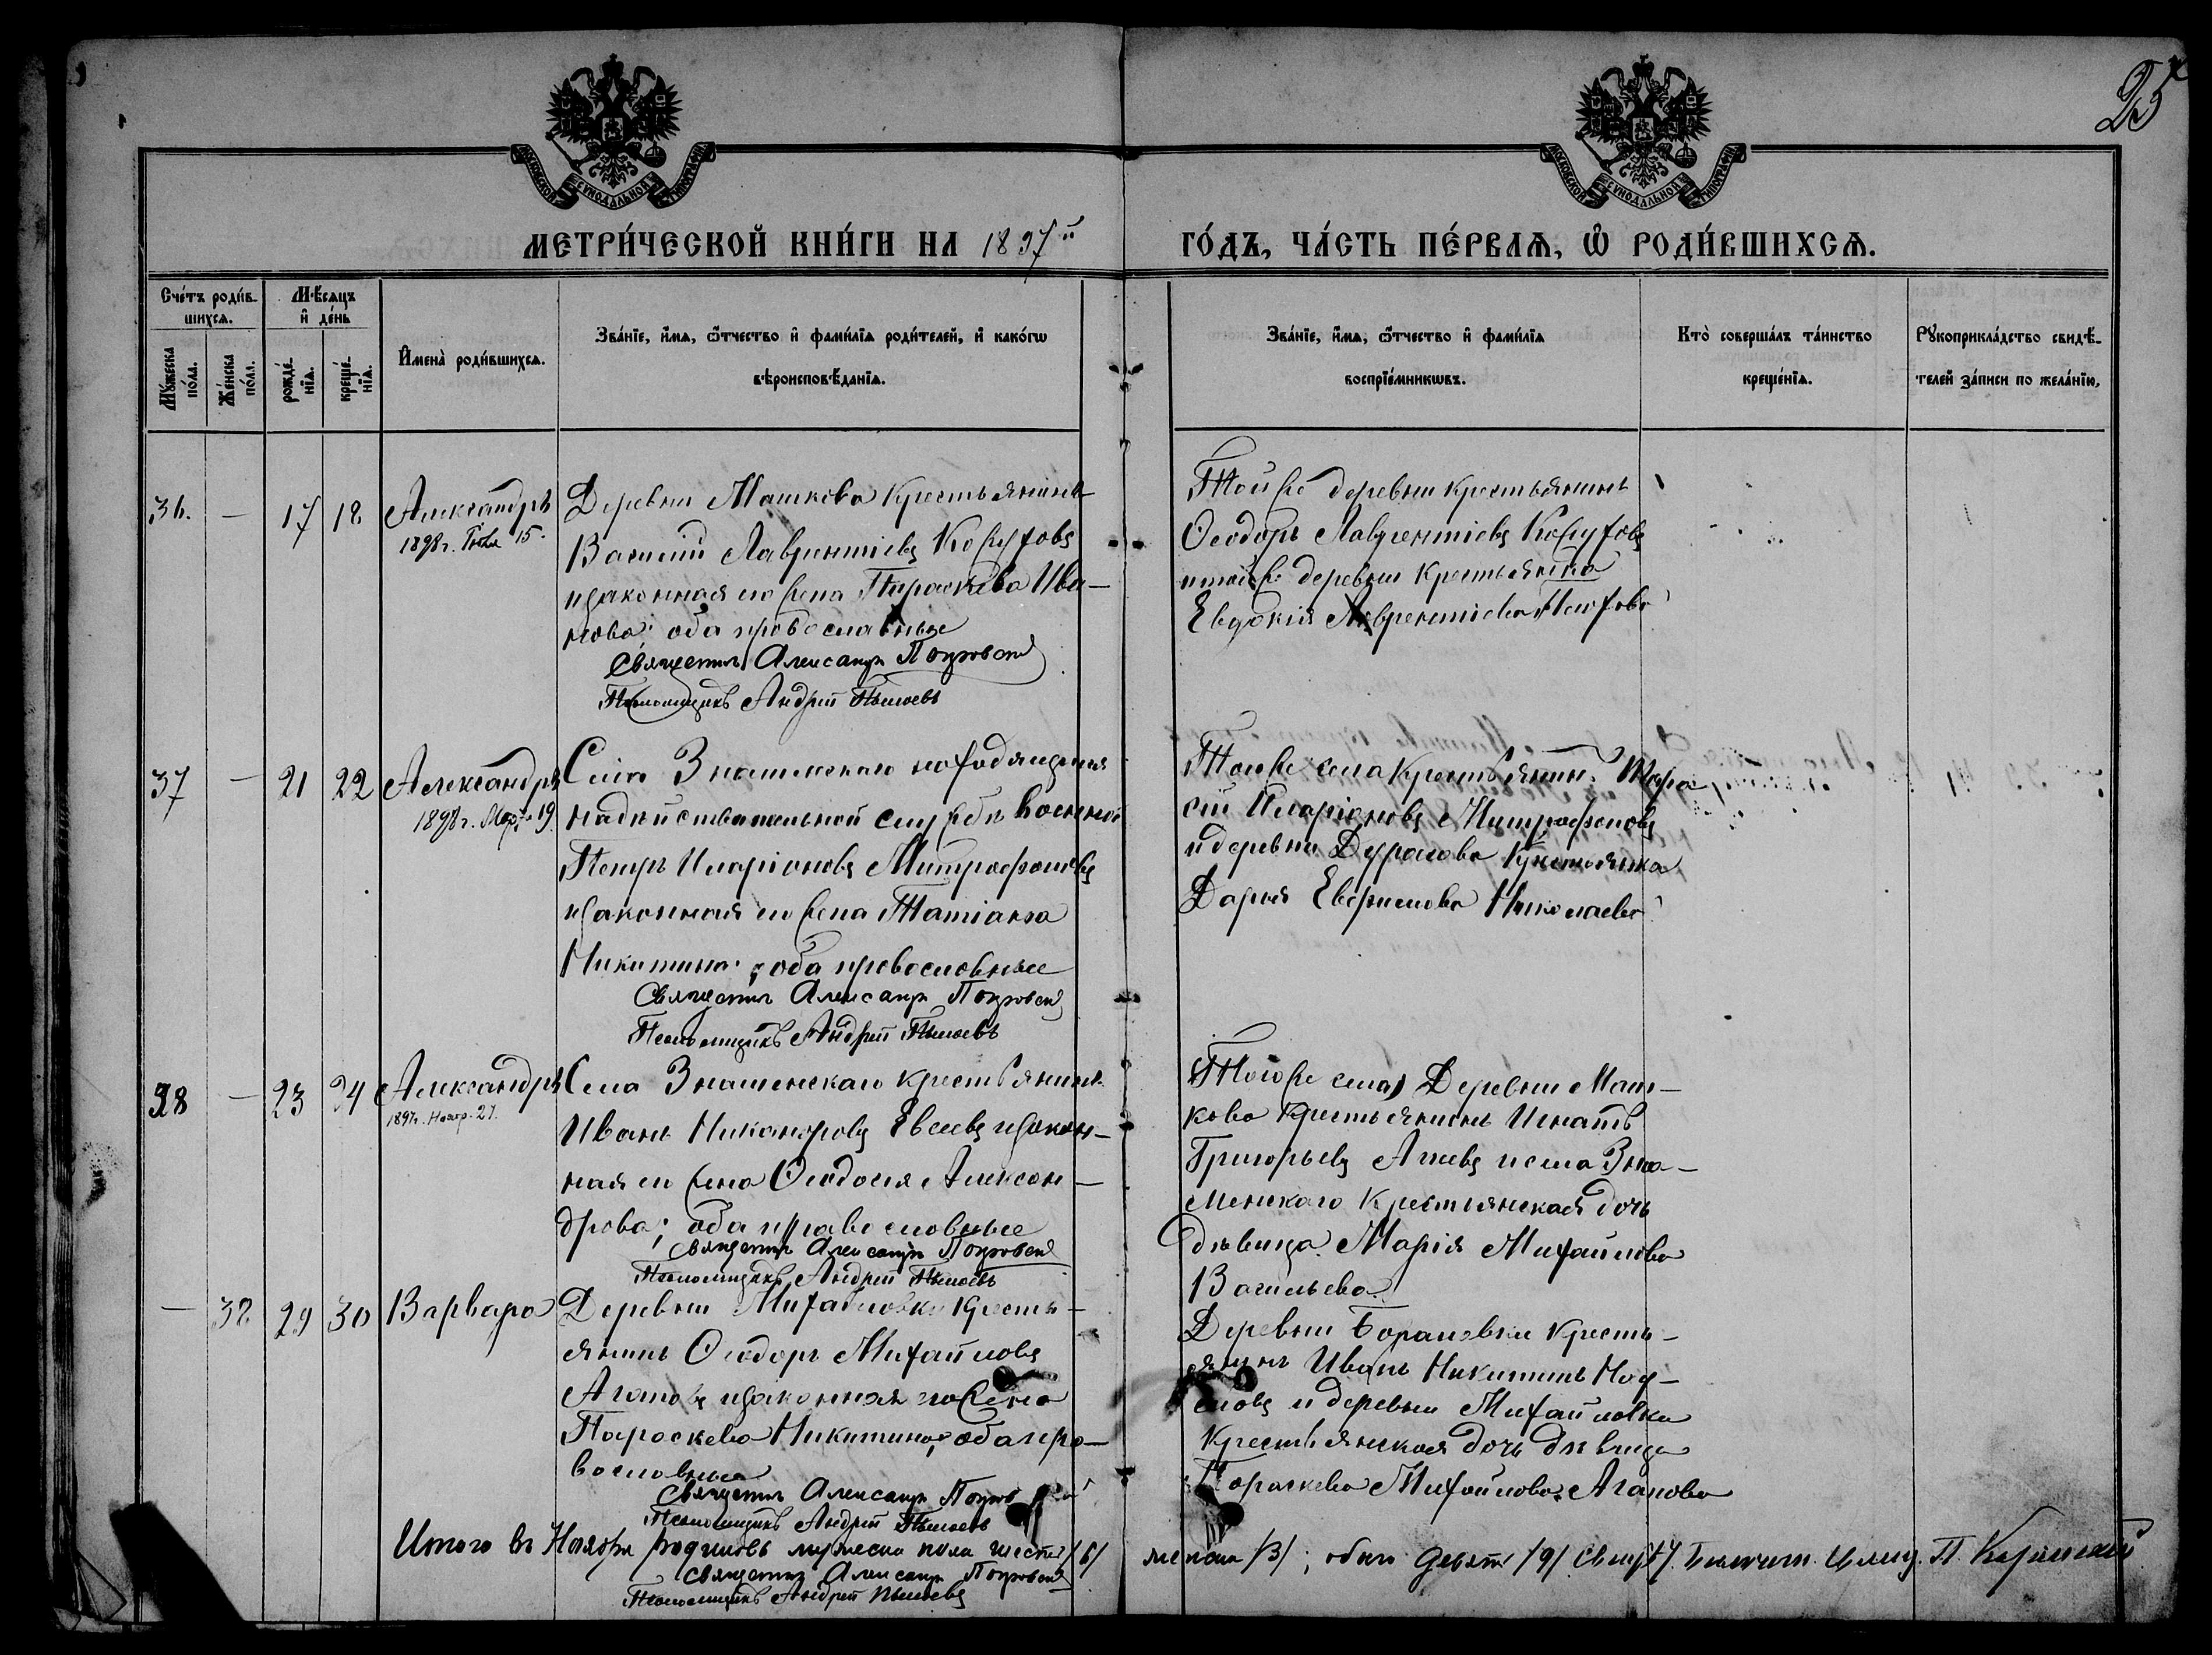 25
МОСКОВСКОЙ СУНОДАЛЬНОЙ ТИПОГРАФІИ
МОСКОВСКОЙ СУНОДАЛЬНОЙ ТИПОГРАФІИ
МЕТРИ́ЧЕСКОЙ КНИ́ГИ НА 1897й ГО́ДЪ, ЧА́СТЬ ПЕ́РВАѦ, Ѡ҆ РОДИ́ВШИХСѦ.
Сче́тъ роди́в-
шихсѧ.
Мѣ́сѧцъ
и҆ де́нь
Мꙋ́жеска
по́ла.
Же́нска
по́ла.
рожде́-
нїѧ.
креще́-
нїѧ.
И҆мена̀ роди́вшихсѧ.
Зва́нїе, и҆́мѧ, ѻ҆́тчество и҆ фами́лїѧ роди́телей, и҆ како́гѡ
вѣроисповѣ́данїѧ.
Зва́нїе, и҆́мѧ, ѻ҆́тчество и҆ фами́лїѧ
воспрїе́мникѡвъ.
Кто̀ соверша́лъ та́инство
креще́нїѧ.
Рꙋкоприкла́дство свидѣ́-
телей за́писи по жела́нїю.
36.
—
17
18
Александръ
1898г. 15.
Деревни Машкова Крестьянинъ
Василій Лаврентіевъ Кожуховъ
изаконная его жена Параскева Ива-
нова; оба православные
Священникъ Александръ Покровскій
Псаломщикъ Андрей
Тойже деревни крестьянинъ
Ѳеодоръ Лаврентіевъ Кожуховъ
итойже деревни Крестьянка
Евдокія Лаврентіева
37
—
21
22
Александръ
1898г. Мар. 19.
Села Знаменскаго находящійся
надѣйствительной службѣ военной
Петръ Иларіоновъ Митрофановъ
изаконная его жена Татіана
Никитина; оба православные
Священникъ Александръ Покровскій
Псаломщикъ Андрей
Тогоже села Крестьянинъ
Иларіоновъ Митрофановъ
идеревни Дурасова Крестьянка
Дарья Николаева
38
—
23
24
Александръ
1897г. Ноябр. 27.
Села Знаменскаго крестьянинъ
Иванъ Никаноровъ Евсеевъ изакон-
ная его жена Ѳеодосія Алексан-
дрова; оба православные
Священникъ Александръ Покровскій
Псаломщикъ Андрей
Тогоже села) Деревни Маш-
кова Крестьянинъ Игнатъ
Григорьевъ Агеевъ исела Зна-
менскаго Крестьянская дочь
дѣвица Марія Михайлова
Васильева.
—
32
29
30
Варвара
Деревни Михайловки Кресть-
янинъ Ѳеодоръ Михайловъ
Агаповъ изаконная его жена
Параскева Никитина; оба пра-
вославные
Священникъ Александръ
Псаломщикъ Андрей
Деревни Борановки Кресть-
янинъ Иванъ Никитинъ
и деревни Михайловки
Крестьянская дочь дѣвица
Параскева Михайлова Агапова
Итого въ Ноябрѣ родилось мужеска пола шесть /6/ женска /3/; обоего девять /9/
Священникъ Александръ Покровскій
Псаломщикъ Андрей